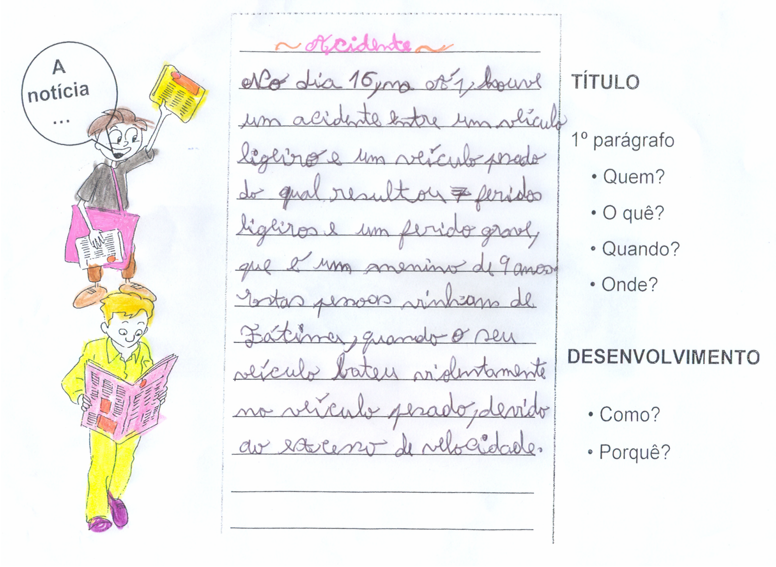 A
notícia
...
~ Acidente ~
No dia 16, na A1, houve
um acidente entre um veículo
ligeiro e um veículo pesado
do qual resultou 7 feridos
ligeiros e um ferido grave,
que é um menino de 9 anos.
Estas pessoas vinham de
Fátima, quando o seu
veículo bateu violentamente
no veículo pesado, devido
ao excesso de velocidade.
TÍTULO
1º parágrafo
• Quem?
• O quê?
• Quando?
• Onde?
DESENVOLVIMENTO
• Como?
• Porquê?